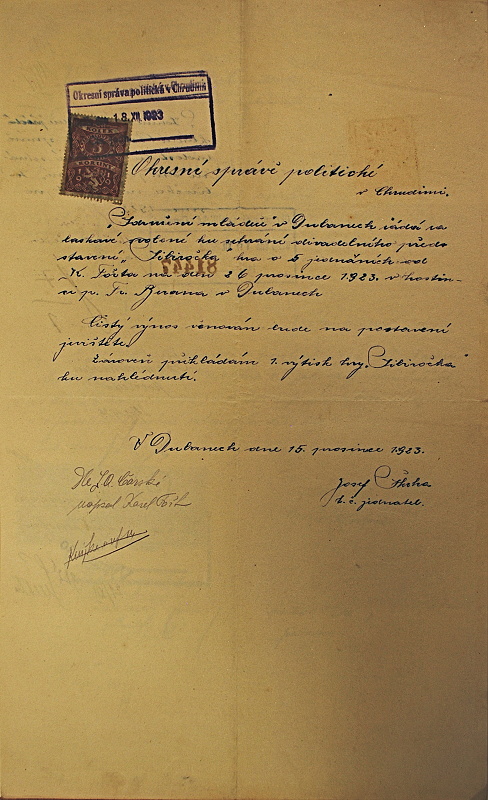 Okresní správa politická v Chrudimi
18.XII.1923
KOLEK
5
KORUNA
Okresní správě politické
v Chrudimi.
„Sdružení mládeže" v Dubanech žádá za
laskavé svolení ku sehrání divadelního před-
stavení „Sibiročka" hra o 5 jednáních od
K. Fořta na den 26 prosince 1923. v hostin-
ci p. Fr. v Dubanech
81447
Čistý výnos věnován bude na postavení
jeviště.
Zároveň přikládám 1. výtisk hry „Sibiročka"
ku nahlédnutí.
V Dubanech dne 15. prosince 1923.
Dle
napsal Karel Fořt
Josef
t. č. jednatel.